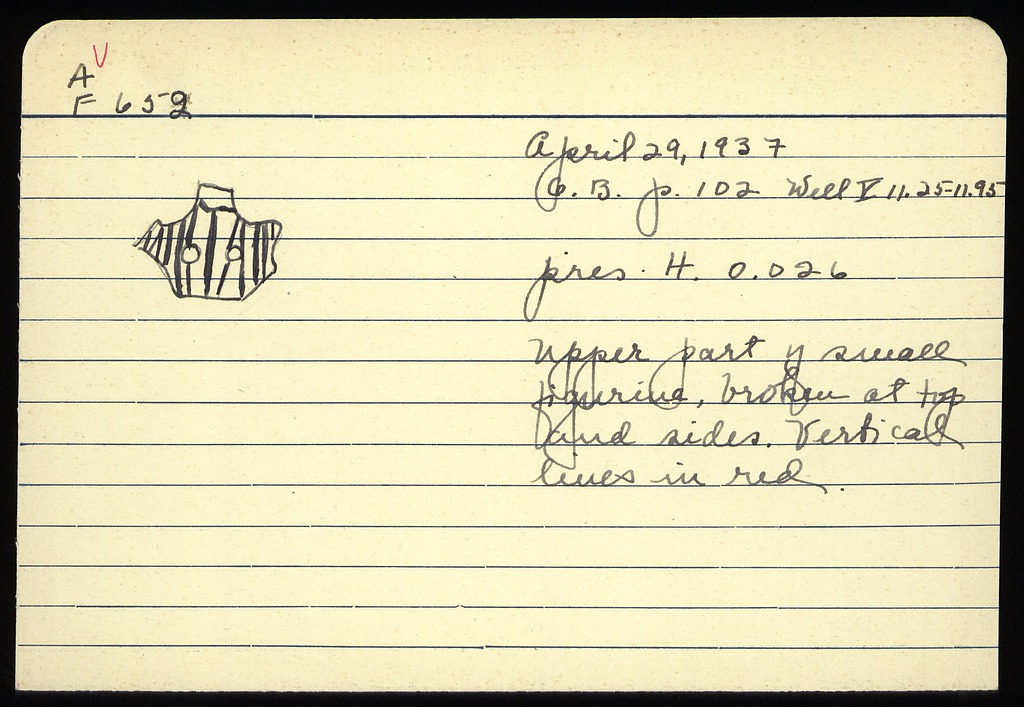 A V
F 652
April 29, 1937
C. B. p. 102 Well V 11.25-11.95
pres. H. 0.026
Upper part of small
figurine, broken at top
and sides. Vertical
lines in red.